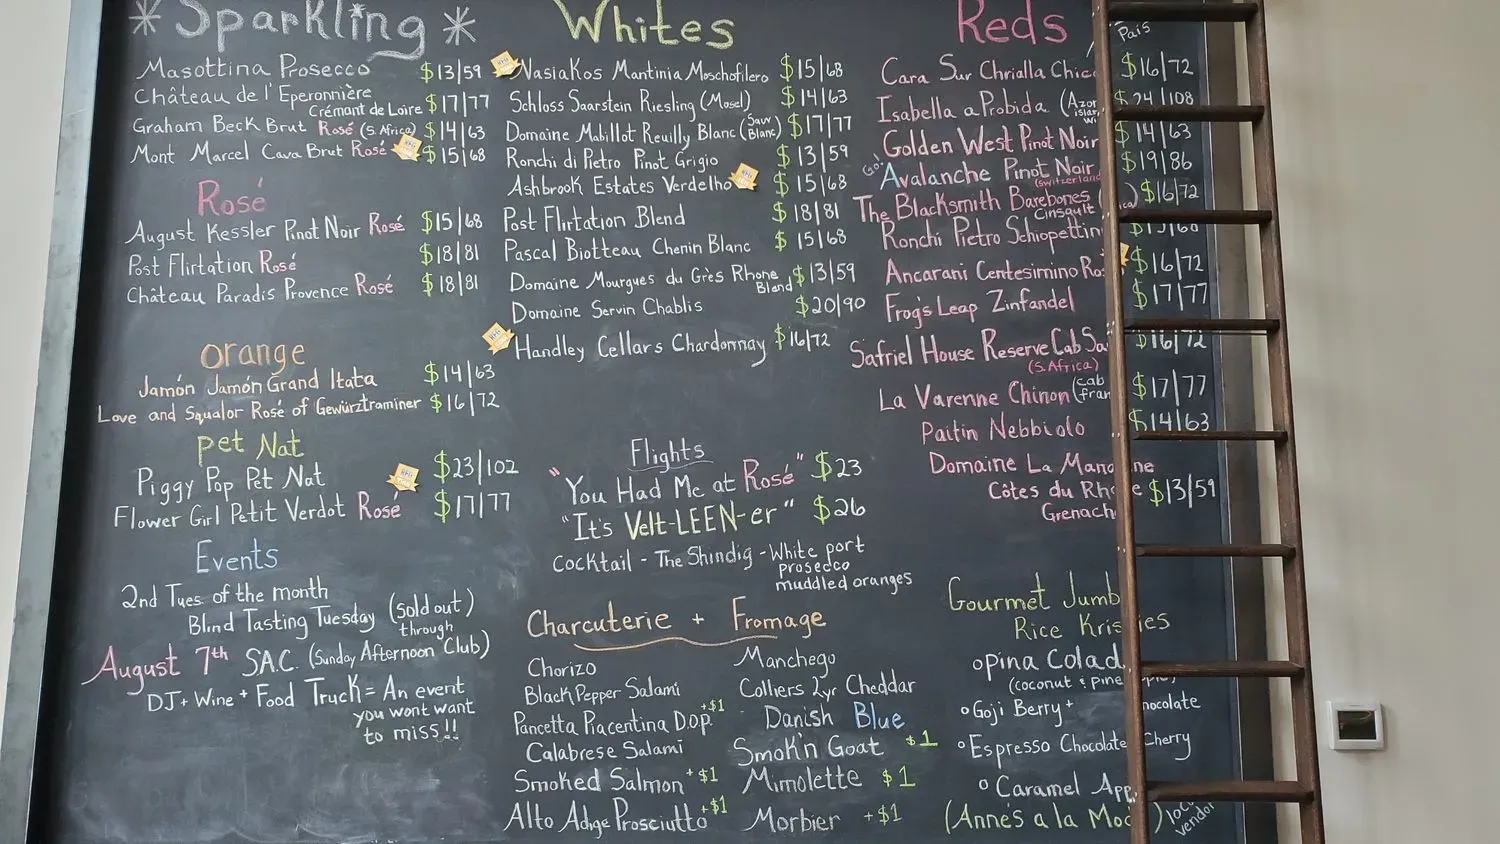 *Sparkling*
Masottina Prosecco $13|59
Château de l'Eperonnière
Crémant de Loire $17|77
Graham Beck Brut Rosé (S. Africa) $14|63
Mont Marcel Cava Brut Rosé $15|68
Rosé
August Kessler Pinot Noir Rosé $15|68
Post Flirtation Rosé $18|81
Château Paradis Provence Rosé $18|81
Orange
Jamón Jamón Grand Itata $14|63
Love and Squalor Rosé of Gewürztraminer $16|72
Pet Nat
Piggy Pop Pet Nat $23|102
Flower Girl Petit Verdot Rosé $17|77
Events
2nd Tues of the month
Blind Tasting Tuesday (sold out)
through
August 7th S.A.C. (Sunday Afternoon Club)
DJ + Wine + Food Truck = An event
you wont want
to miss!!
Whites
Nasiakos Mantinia Moschofilero $15|68
Schloss Saarstein Riesling (Mosel) $14|63
Domaine Mabillot Reuilly Blanc (Sauv Blanc) $17|77
Ronchi di Pietro Pinot Grigio $13|59
Ashbrook Estates Verdelho $15|68
Post Flirtation Blend $18|81
Pascal Biotteau Chenin Blanc $15|68
Domaine Mourgues du Grès Rhone Blend $13|59
Domaine Servin Chablis $20|90
Handley Cellars Chardonnay $16|72
Flights
"You Had Me at Rosé" $23
"It's Velt-LEEN-er" $26
Cocktail - The Shindig - White port
prosecco
muddled oranges
Charcuterie + Fromage
Chorizo
Black Pepper Salami
Pancetta Piacentina D.O.P. +$1
Calabrese Salami
Smoked Salmon +$1
Alto Adige Prosciutto +$1
Manchego
Colliers 2yr Cheddar
Danish Blue
Smok'n Goat $1
Mimolette $1
Morbier +$1
Reds
País
Cara Sur Chrialla Chica $16|72
Isabella a Probida (Azor $24|108
Golden West Pinot Noir $14|63
Go! Avalanche Pinot Noir $19|86
(Switzerland
The Blacksmith Barebones $16|72
Cinsault
Ronchi Pietro Schiopettin $15|68
Ancarani Centesimino Ros $16|72
Frog's Leap Zinfandel $17|77
Safriel House Reserve Cab Sa $16|72
(S. Africa)
La Varenne Chinon (cab fran $17|77
Paitin Nebbiolo $14|63
Domaine La Man ne
Côtes du Rh e $13|59
Grenach
Gourmet Jumb
Rice Kris ies
Pina Colad
(coconut & pine
Goji Berry + hocolate
Espresso Chocolate Cherry
Caramel App
(Anne's a la Mod ) local
vendor